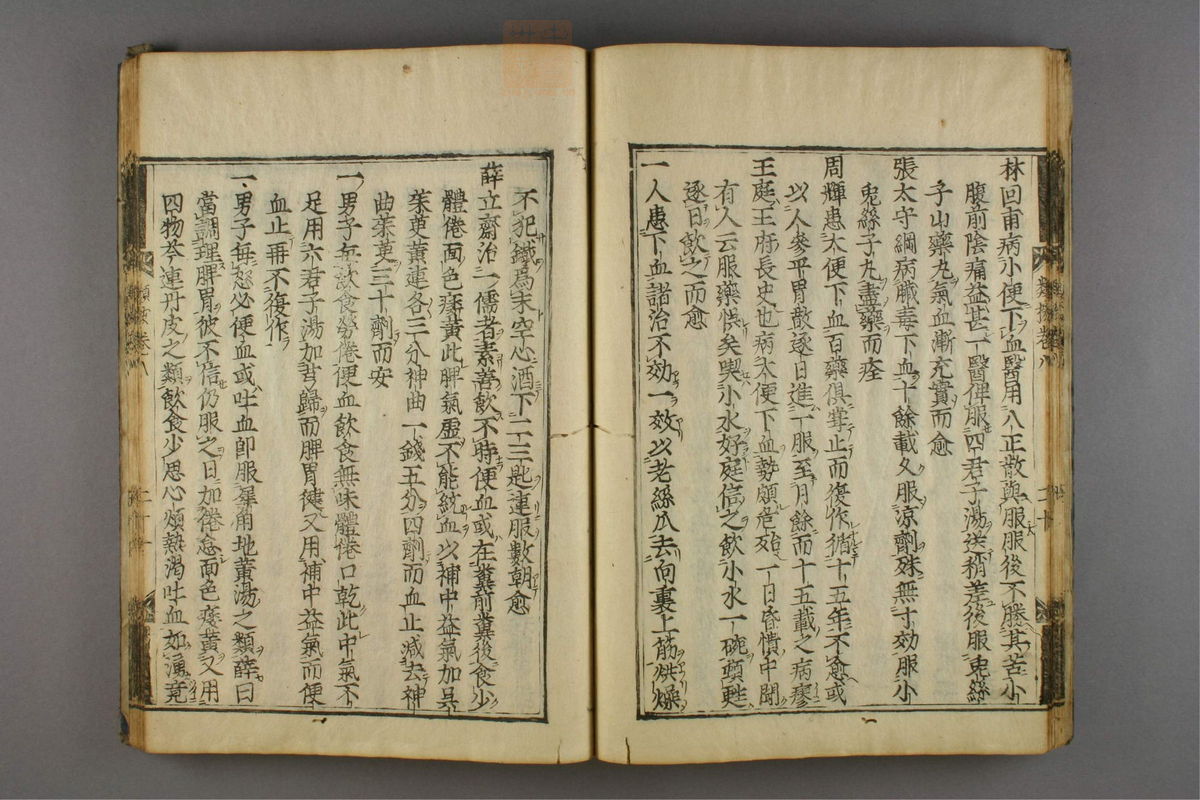 林回甫病小便下血醫用八正散與服服後不勝其苦小
腹前陰痛益甚一醫俾服四君子湯送稍差後服兎絲
子山藥丸氣血漸充實而愈
張太守綱病臟毒下血十餘載久服凉劑殊無寸効服小
兎絲子丸盡藥而痊
周輝患大便下血百藥俱弉止而復作循十五年不愈或
以人參平胃散逐日進一服至月餘而十五載之病瘳
王庭王府長史也病大便下血勢頗危殆一日昏憒中聞
有人云服藥悞矣喫小水好庭信之飲小水一碗頓甦
逐日飲之而愈
一人患下血諸治不効一效以老絲瓜去向裏上筋烘燥
不犯鐵爲末空心酒下二三匙連服數朝愈
薛立齋治一儒者素善飲不時便血或在糞前糞後食少
體倦面色痿黃此脾氣虚不能統血以補中益氣加吳
茱萸黃連各三分神曲一錢五分四劑而血止減去神
曲茱萸三十劑而安
一男子每飲食勞倦便血飲食無味體倦口乾此中氣不
足用六君子湯加芎歸而脾胃健又用補中益氣而便
血止再不復作
一男子每怒必便血或吐血即服犀角地黃湯之類薛曰
當調理脾胃彼不信仍服之日加倦怠面色痿黃又用
四物芩連丹皮之類飲食少思心煩熱渴吐血如湧竟